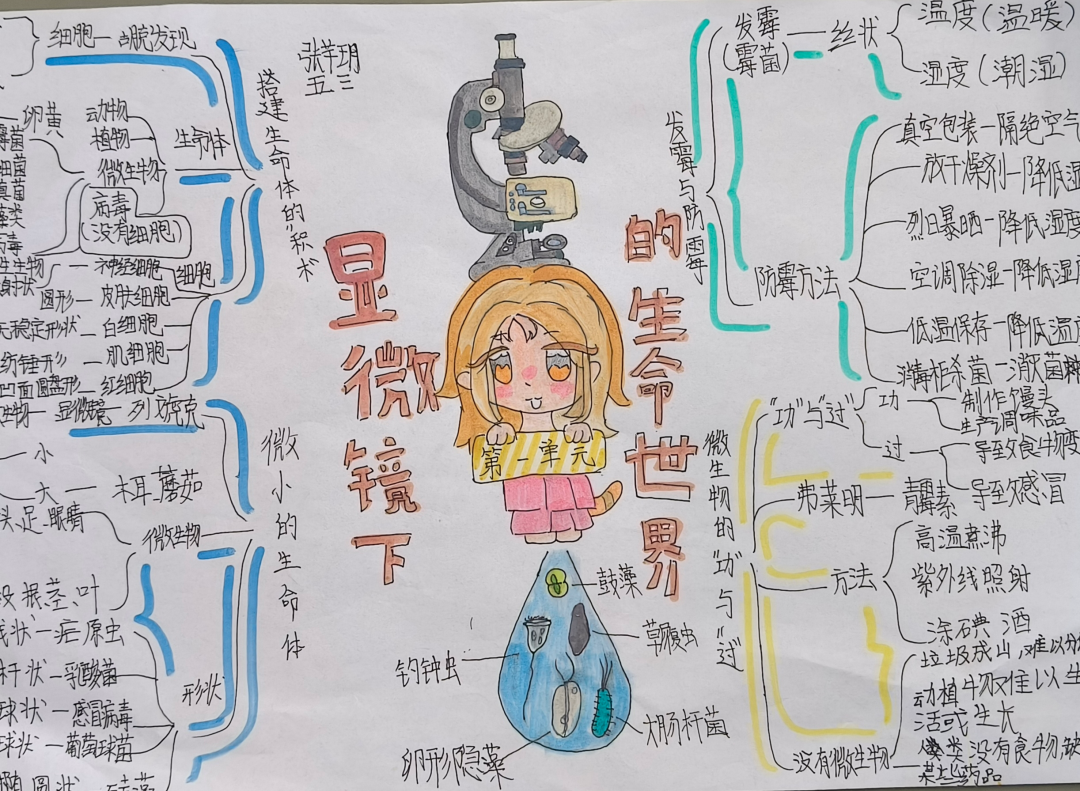 显微镜下
的生命世界
第一单元
张莘玥
五三
搭建生命体的积木
细胞—胡脘发现
生命体
动物
植物
微生物
病毒
(没有细胞)
卵黄
细菌
真菌
藻类
细胞
神经细胞
圆形—皮肤细胞
无稳定形状—白细胞
纺锤形—肌细胞
凹面圆盘形—红细胞
微小的生命体
显微镜—列文虎克
小
大—木耳、蘑茹
微生物
头、足、眼睛
根、茎、叶
形状
线状—疟原虫
杆状—乳酸菌
球状—感冒病毒
球状—葡萄球菌
圆状
鼓藻
草履虫
钓钟虫
大肠杆菌
卵形隐藻
发霉与防霉
发霉
(霉菌)—丝状
温度(温暖)
湿度(潮湿)
防霉方法
真空包装—隔绝空气
放干燥剂—降低湿
烈日暴晒—降低湿度
空调除湿—降低湿度
低温保存—降低温
消毒柜杀菌—消灭菌种
微生物的"功"与"过"
"功"与"过"
功
制作馒头
生产调味品
过
导致食物变
导致感冒
弗莱明—青霉素
方法
高温煮沸
紫外线照射
涂碘酒
没有微生物
垃圾成山,难以分
动植物难以生
活或生长
人类没有食物,缺
某些药品